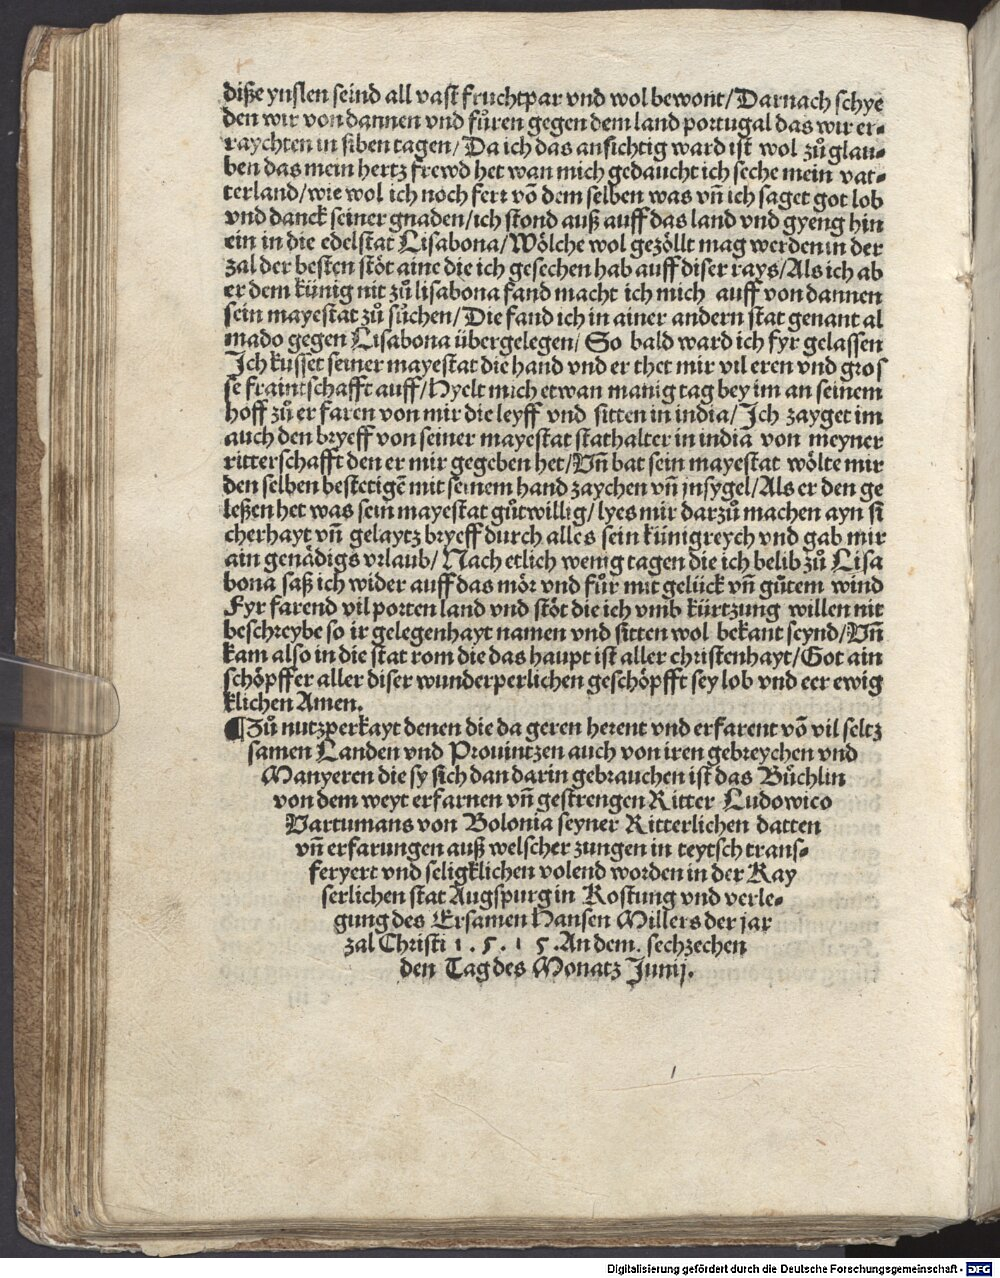 diße ynslen seind all vast fruchtpar vnd wol bewont/Darnach schye
den wir von dannen vnd fůren gegen dem land portugal das wir er-
raychten in siben tagen/Da ich das ansichtig ward ist wol zů glau-
ben das mein hertz frewd het wan mich gedaucht ich seche mein vat-
terland/wie wol ich noch ferr võ dem selben was vñ ich saget got lob
vnd danck seiner gnaden/ich stond auß auff das land vnd gyeng hin
ein in die edel stat Lisabona/Wölche wol gezöllt mag werden in der
zal der besten stöt aine die ich gesechen hab auff diser rays/Als ich ab
er dem künig nit zů lisabona fand macht ich mich auff von dannen
sein mayestat zů sůchen/Die fand ich in ainer andern stat genant al
mado gegen Lisabona übergelegen/ So bald ward ich fyr gelassen
Ich kusset seiner mayestat die hand vnd er thet mir vil eren vnd gros
se fraintschafft auff/Hyelt mich etwan manig tag bey im an seinem
hoff zů erfaren von mir die leyff vnd sitten in india/Ich zayget im
auch den bryeff von seiner mayestat stathalter in india von meyner
ritterschafft den er mir gegeben het/Vñ bat sein mayestat wölte mir
den selben bestetigẽ mit seinem hand zaychen vñ jnsygel/Als er den ge
leßen het was sein mayestat gůtwillig/lyes mir darzů machen ayn si
cherhayt vñ gelaytz bryeff durch alles sein künigreych vnd gab mir
ain genädigs vrlaub/Nach etlich wenig tagen die ich belib zů Lisa
bona saß ich wider auff das mör vnd fůr mit gelück vñ gůtem wind
Fyr farend vil porten land vnd stöt die ich vmb kürtzung willen nit
beschreybe so ir gelegenhayt namen vnd sitten wol bekant seynd/Vñ
kam also in die stat rom die das haupt ist aller christenhayt/Got ain
schöpffer aller diser wunderperlichen geschöpfft sey lob vnd eer ewig
klichen Amen.
¶Zů nutzperkayt denen die da geren herent vnd erfarent võ vil seltz
samen Landen vnd Prouintzen auch von iren gebreychen vnd
Manyeren die sy sich dan darin gebrauchen ist das Bůchlin
von dem weyt erfarnen vñ gestrengen Ritter Ludowico
Vartumans von Bolonia seyner Ritterlichen datten
vñ erfarungen auß welscher zungen in teytsch trans-
feryert vnd seligklichen volend worden in der Kay
serlichen stat Augspurg in Kostung vnd verle-
gung des Ersamen Hansen Millers der jar
zal Christi 1.5.15.An dem. sechzechen
den Tag des Monatz Junij.
Digitalisierung gefördert durch die Deutsche Forschungsgemeinschaft - DFG